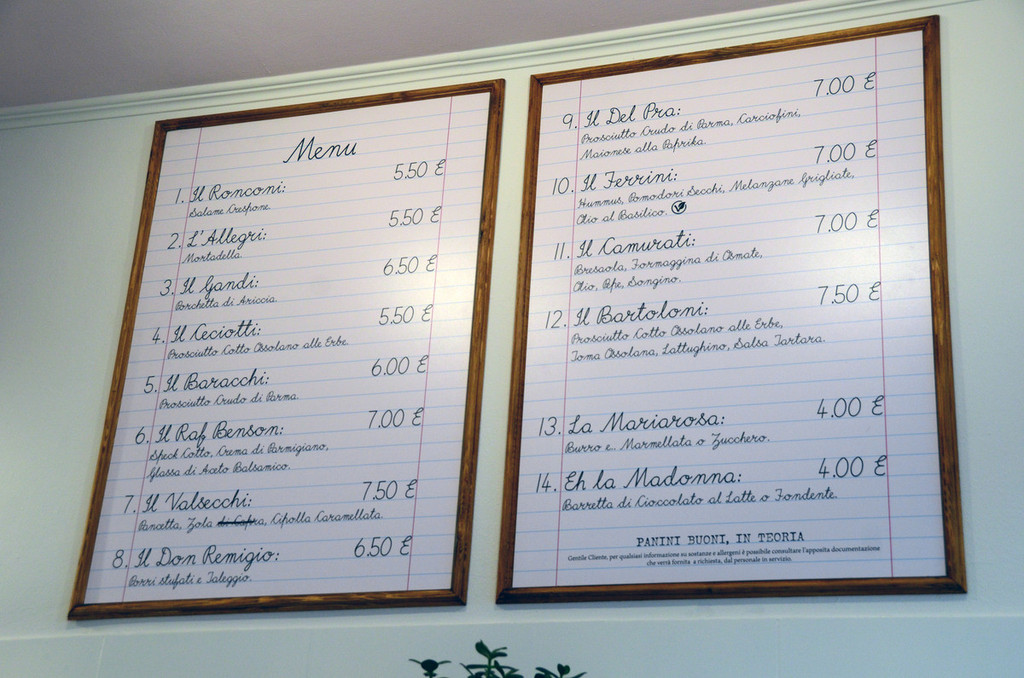 Menu
5.50 €
1. Il Ronconi:
Salame Crespone.
5.50 €
2. L'Allegri:
Mortadella.
6.50 €
3. Il Gandi:
Porchetta di Ariccia.
5.50 €
4. Il Ceciotti:
Prosciutto Cotto Ossolano alle Erbe.
6.00 €
5. Il Baracchi:
Prosciutto Crudo di Parma.
7.00 €
6. Il Raf Benson:
Speck Cotto, Crema di Parmigiano,
Glassa di Aceto Balsamico.
7.50 €
7. Il Valsecchi:
Pancetta, Zola di Capra, Cipolla Caramellata.
6.50 €
8. Il Don Remigio:
Porri stufati e Taleggio.
7.00 €
9. Il Del Pra:
Prosciutto Crudo di Parma, Carciofini,
Maionese alla Paprika.
7.00 €
10. Il Ferrini:
Hummus, Pomodori Secchi, Melanzane Grigliate,
Olio al Basilico.
7.00 €
11. Il Camurati:
Bresaola, Formaggina di Osmate,
Olio, Pepe, Songino.
7.50 €
12. Il Bartoloni:
Prosciutto Cotto Ossolano alle Erbe,
Toma Ossolana, Lattughino, Salsa Tartara.
4.00 €
13. La Mariarosa:
Burro e... Marmellata o Zucchero.
4.00 €
14. Eh la Madonna:
Barretta di Cioccolato al Latte o Fondente.
PANINI BUONI, IN TEORIA
Gentile Cliente, per qualsiasi informazione su sostanze e allergeni è possibile consultare l'apposita documentazione
che verrà fornita a richiesta, dal personale in servizio.